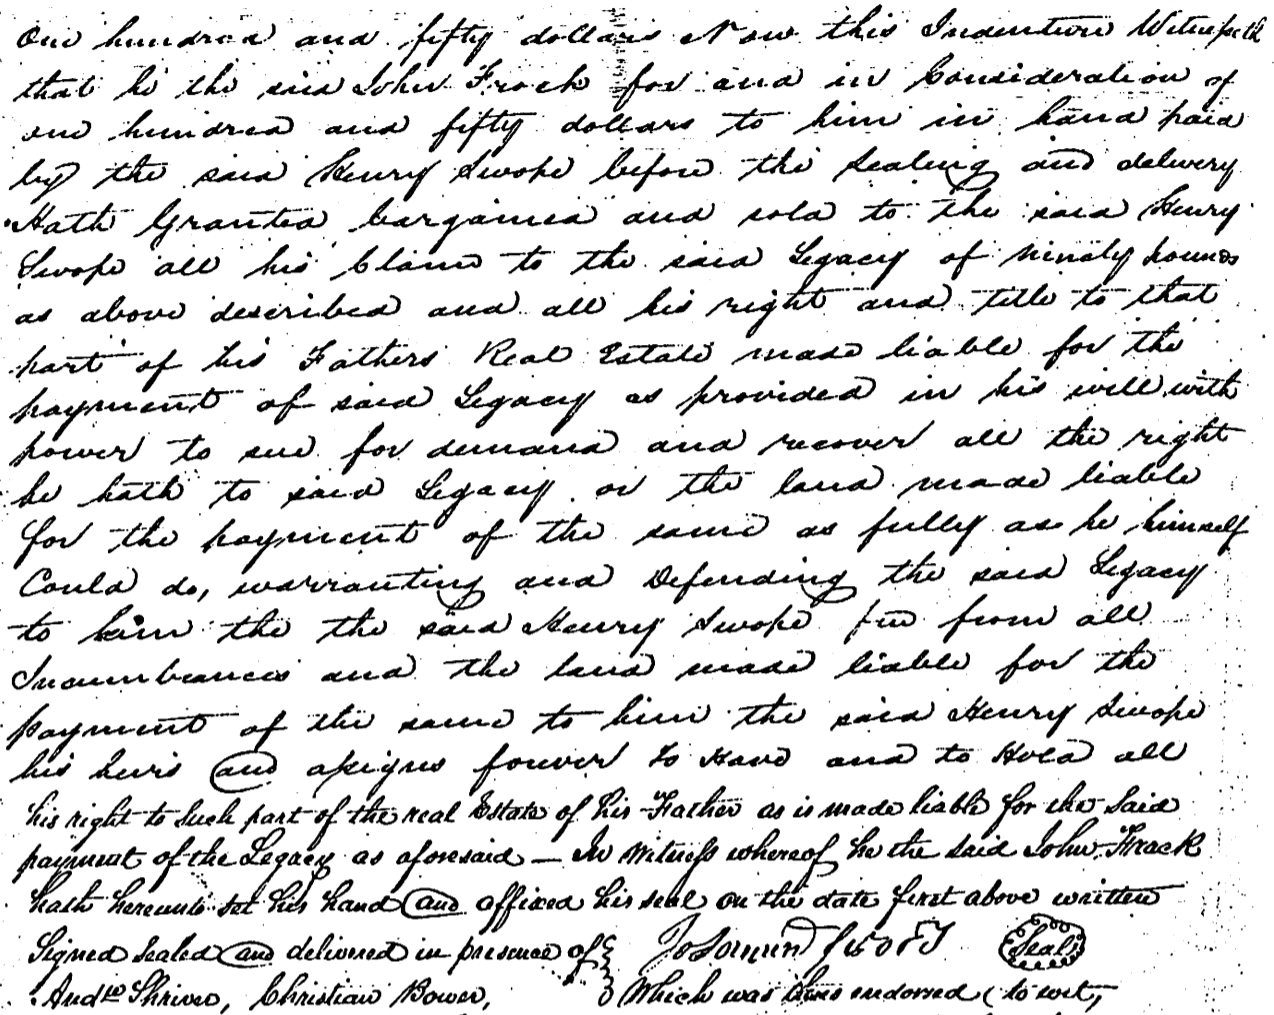 One hundred and fifty dollars Now this Indenture Witnesseth
that he the said John Frock for and in Consideration of
one hundred and fifty dollars to him in hand paid
by the said Henry Swope before the Sealing and delivery
Hath Granted bargained and sold to the said Henry
Swope all his Claim to the said Legacy of ninety pounds
as above described and all his right and title to that
part of his Fathers Real Estate made liable for the
payment of said Legacy as provided in his will with
power to sue for demand and recover all the right
he hath to said Legacy or the land made liable
for the payment of the same as fully as he himself
Could do, warranting and Defending the said Legacy
to him the the said Henry Swope free from all
Incumbrances and the land made liable for the
payment of the same to him the said Henry Swope
his heirs and assigns forever to Have and to Hold all
his right to Such part of the real Estate of his Father as is made liable for the Said
payment of the Legacy as aforesaid — In Witness whereof he the Said John Frack
hath hereunto Set his hand and affixed his seal on the date first above written
Signed Sealed and delivered in presence of Seal
Andw Shriver, Christian Bower, Which was thus endorsed (to wit,